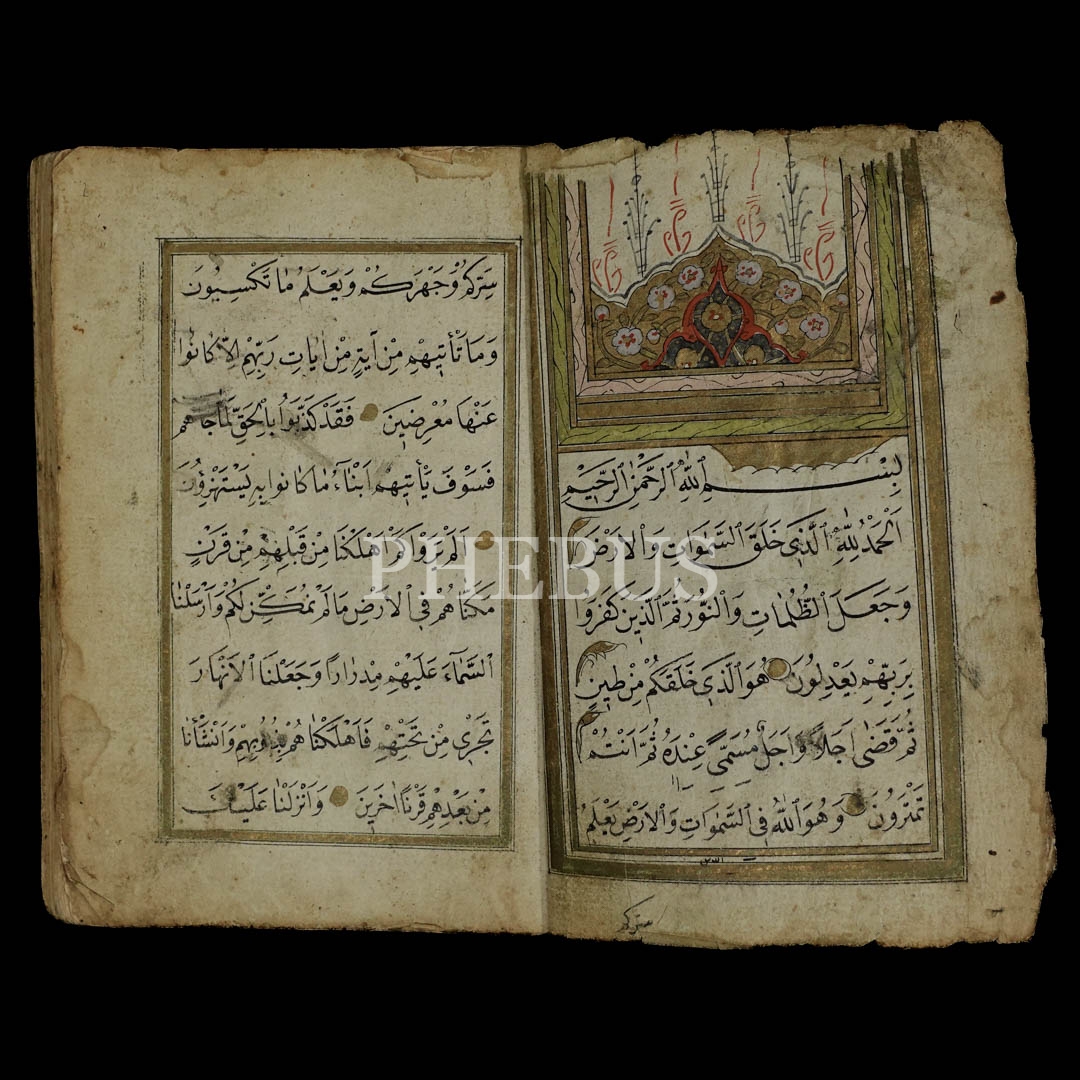 بِسْمِ اللّٰهِ الرَّحْمٰنِ الرَّحِيمِ
اَلْحَمْدُ لِلّٰهِ الَّذِي خَلَقَ السَّمٰوَاتِ وَالْاَرْضَ
وَجَعَلَ الظُّلُمَاتِ وَالنُّورَ ثُمَّ الَّذِينَ كَفَرُوا
بِرَبِّهِمْ يَعْدِلُونَ هُوَ الَّذِي خَلَقَكُمْ مِنْ طِينٍ
ثُمَّ قَضٰى اَجَلًا وَاَجَلٌ مُسَمًّى عِنْدَهُ ثُمَّ اَنْتُمْ
تَمْتَرُونَ وَهُوَ اللّٰهُ فِي السَّمٰوَاتِ وَالْاَرْضِ يَعْلَمُ
سركم
سِرَّكُمْ وَجَهْرَكُمْ وَيَعْلَمُ مَا تَكْسِبُونَ
وَمَا تَأْتِيهِمْ مِنْ اٰيَةٍ مِنْ اٰيَاتِ رَبِّهِمْ اِلَّا كَانُوا
عَنْهَا مُعْرِضِينَ فَقَدْ كَذَّبُوا بِالْحَقِّ لَمَّا جَاءَهُمْ
فَسَوْفَ يَأْتِيهِمْ اَنْبَاءُ مَا كَانُوا بِهِ يَسْتَهْزِؤُنَ
اَلَمْ يَرَوْا كَمْ اَهْلَكْنَا مِنْ قَبْلِهِمْ مِنْ قَرْنٍ
مَكَّنَّاهُمْ فِي الْاَرْضِ مَا لَمْ نُمَكِّنْ لَكُمْ وَاَرْسَلْنَا
السَّمَاءَ عَلَيْهِمْ مِدْرَارًا وَجَعَلْنَا الْاَنْهَارَ
تَجْرِي مِنْ تَحْتِهِمْ فَاَهْلَكْنَاهُمْ بِذُنُوبِهِمْ وَاَنْشَأْنَا
مِنْ بَعْدِهِمْ قَرْنًا اٰخَرِينَ وَاَنْزَلْنَا عَلَيْكَ
PHEBUS